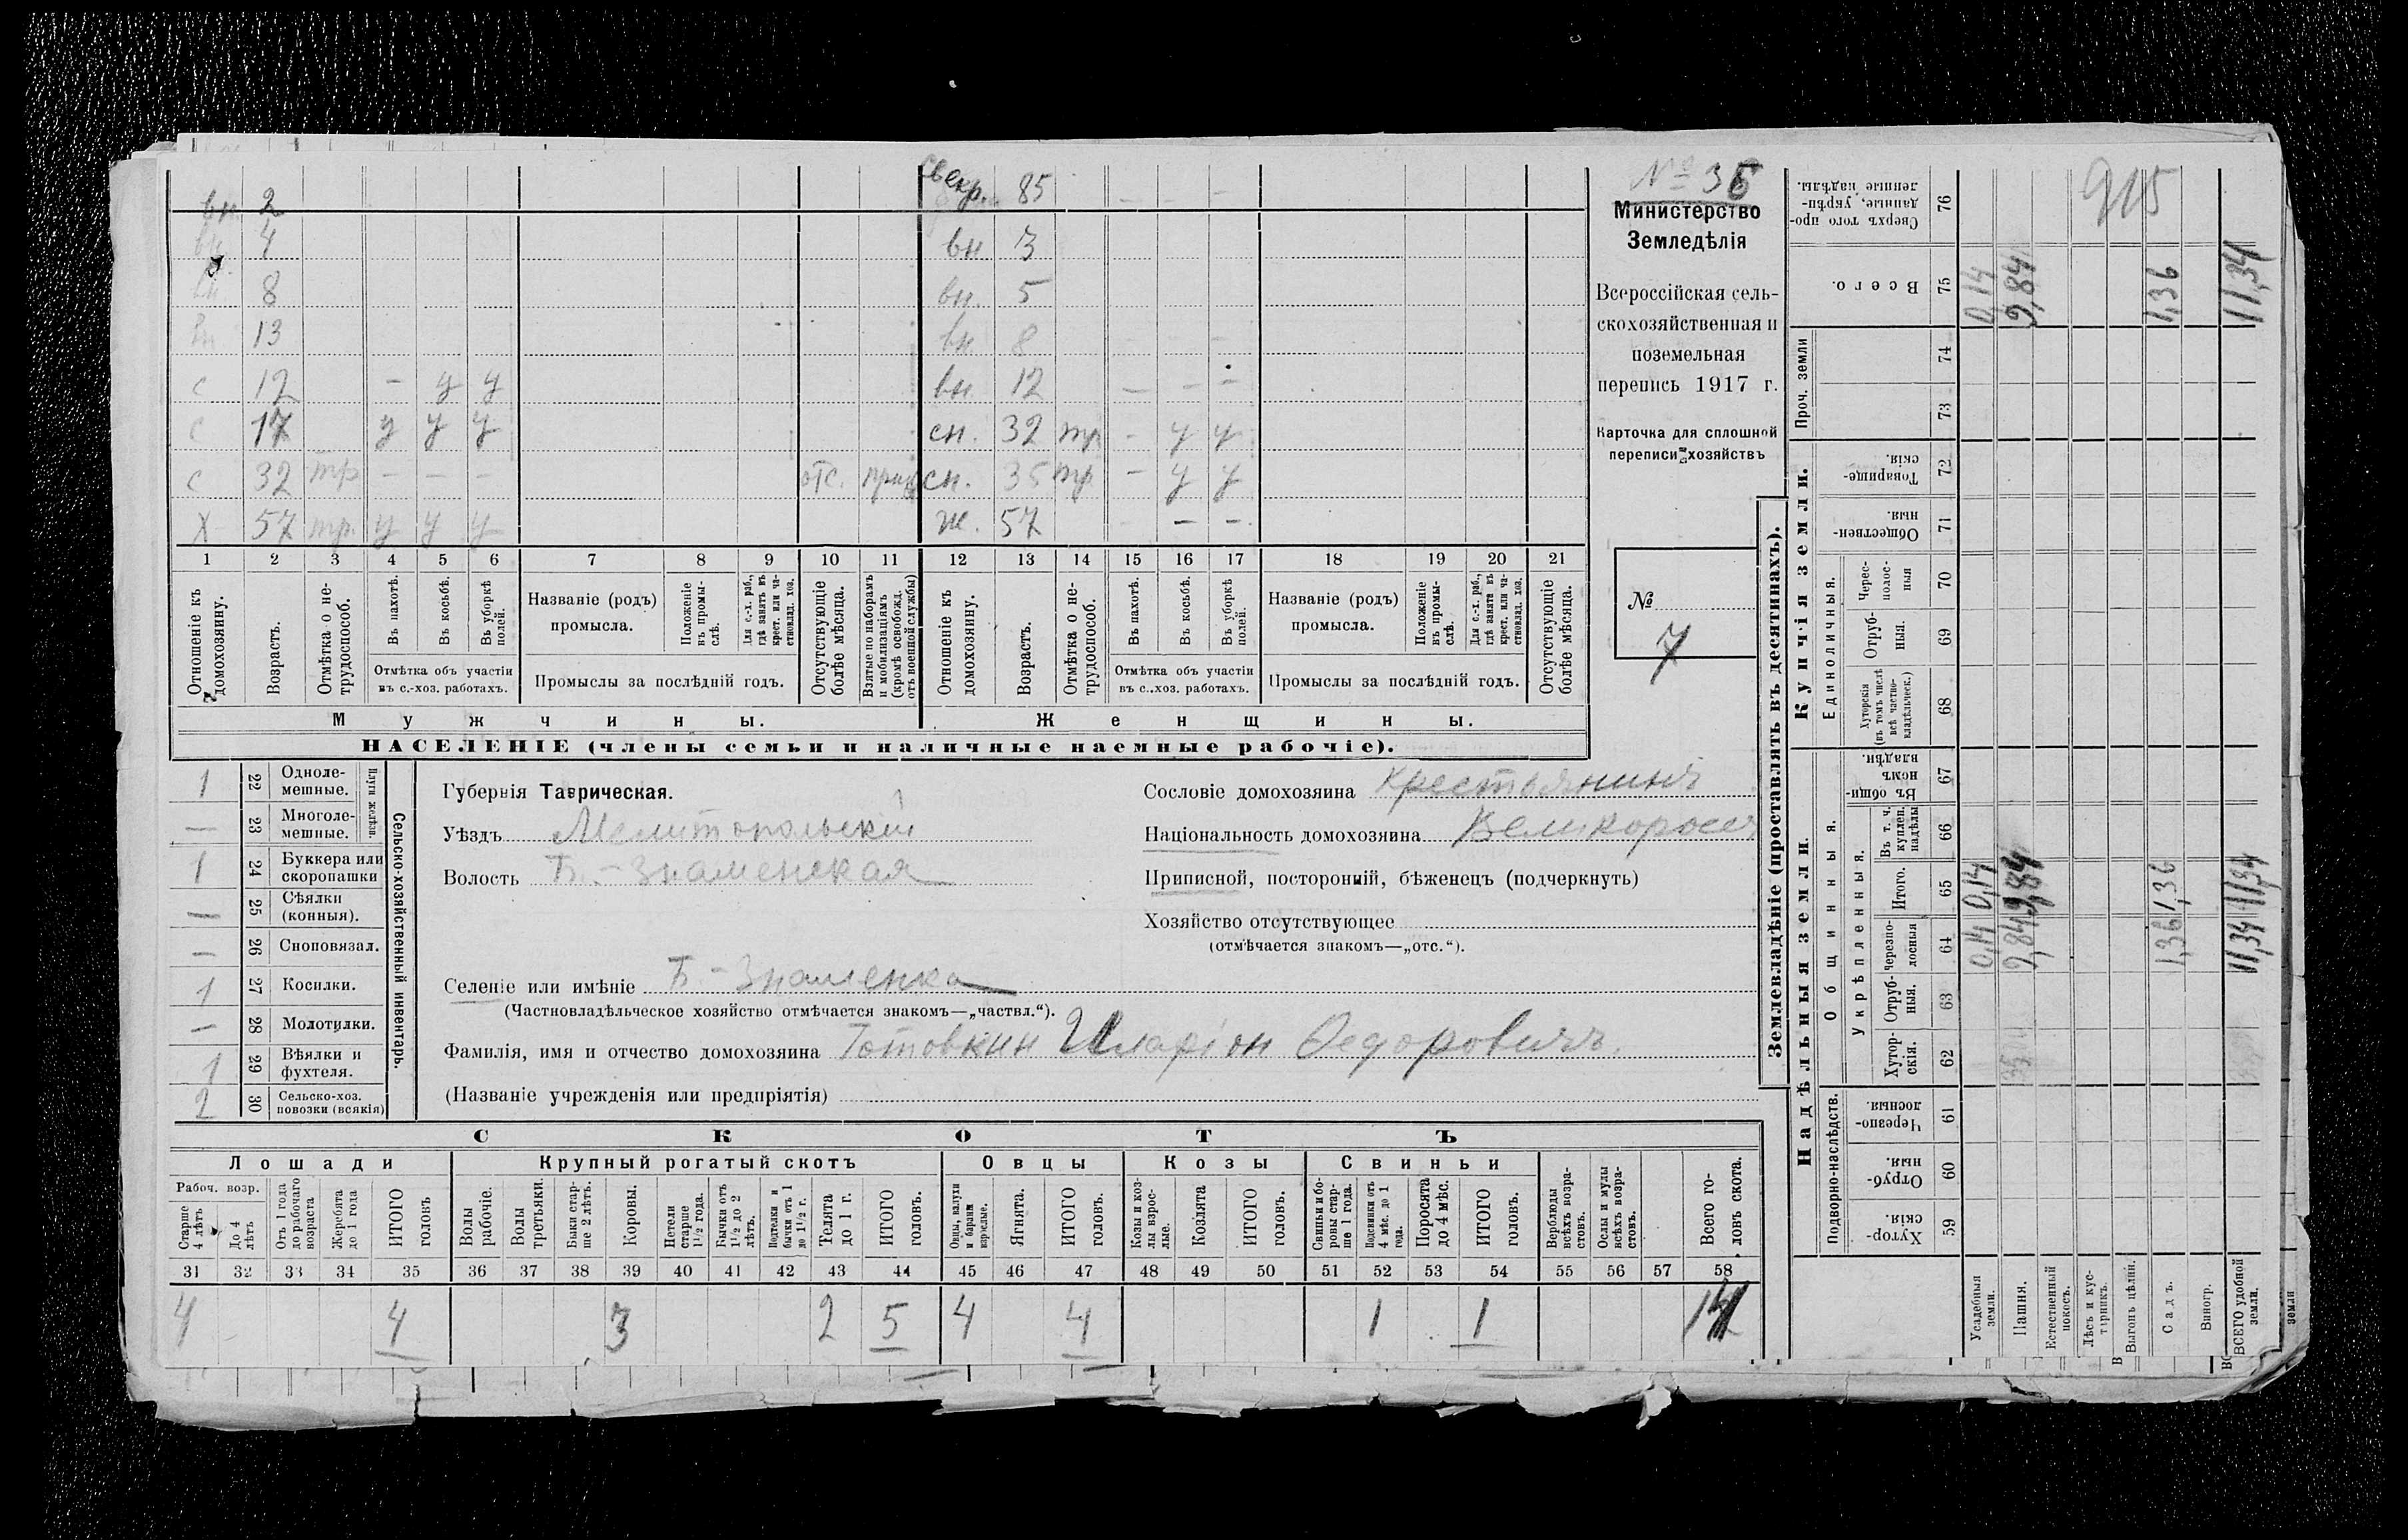 Свекр. 85
№ 36
вн 2
вн 4 вн 3
вн 8 вн. 5
вн 13 вн 8
с 12 – у у вн. 12 – – –
с 17 у у у сн. 32 тр – у у
с 32 тр – – – отс. сн. 35 тр – у у
Х 57 тр. у у у ж. 57 – – –
1 2 3 4 5 6 7 8 9 10 11 12 13 14 15 16 17 18 19 20 21
Отношеніе къ домохозяину.
Возрастъ.
Отмѣтка о не-
трудоспособ.
Въ пахотѣ.
Въ косьбѣ.
Въ уборкѣ
полей.
Отмѣтка объ участіи
въ с.-хоз. работахъ.
Названіе (родъ)
промысла.
Положеніе
въ промы-
слѣ.
Для с.-х. раб.,
гдѣ занятъ въ
крест. или ча-
стновлад. хоз.
Промыслы за послѣдній годъ.
Отсутствующіе
болѣе мѣсяца.
Взятые по наборамъ
и мобилизаціямъ
(кромѣ освобожд.
отъ военной службы)
Отношеніе къ
домохозяину.
Возрастъ.
Отмѣтка о не-
трудоспособ.
Въ пахотѣ.
Въ косьбѣ.
Въ уборкѣ
полей.
Отмѣтка объ участіи
въ с.-хоз. работахъ.
Названіе (родъ)
промысла.
Положеніе
въ промы-
слѣ.
Для с.-х. раб.,
гдѣ занята въ
крест. или ча-
стновлад. хоз.
Промыслы за послѣдній годъ.
Отсутствующіе
болѣе мѣсяца.
Мужчины.
Женщины.
НАСЕЛЕНІЕ (члены семьи и наличные наемные рабочіе).
Министерство
Земледѣлія
Всероссійская сель-
скохозяйственная и
поземельная
перепись 1917 г.
Карточка для сплошной
переписи хозяйствъ
№
7
1 22 Одноле-
мешные.
— 23 Многоле-
мешные.
Плуги желѣзн.
1 24 Буккера или
скоропашки
— 25 Сѣялки
(конныя).
— 26 Сноповязал.
1 27 Косилки.
— 28 Молотилки.
1 29 Вѣялки и
фухтеля.
2 30 Сельско-хоз.
повозки (всякія)
Сельско-хозяйственный инвентарь.
Губернія Таврическая.
Уѣздъ Мелитопольскій
Волость Б.-Знаменская
Селеніе или имѣніе Б-Знаменка
(Частновладѣльческое хозяйство отмѣчается знакомъ—„частвл.“).
Фамилія, имя и отчество домохозяина Готовкин Иларіон Федоровичъ.
(Названіе учрежденія или предпріятія)
Сословіе домохозяина крестьянинъ
Національность домохозяина Великоросс
Приписной, посторонній, бѣженецъ (подчеркнуть)
Хозяйство отсутствующее
(отмѣчается знакомъ—„отс.“).
СКОТЪ
Лошади Крупный рогатый скотъ Овцы Козы Свиньи
Рабоч. возр.
Старше
4 лѣтъ
До 4
лѣтъ
Отъ 1 года
до рабочаго
возраста
Жеребята
до 1 года
ИТОГО
головъ
Волы
рабочіе.
Волы
третьяки.
Быки стар-
ше 2 лѣтъ.
Коровы.
Нетели
старше
1½ года.
Бычки отъ
1½ до 2
лѣтъ.
Подтелки и
бычки отъ 1
до 1½ г.
Телята
до 1 г.
ИТОГО
головъ.
Овцы, валухи
и бараны
взрослые.
Ягнята.
ИТОГО
головъ.
Козы и коз-
лы взрос-
лые.
Козлята
ИТОГО
головъ.
Свиньи и бо-
ровы стар-
ше 1 года.
Подсвинки отъ
4 мѣс. до 1
года.
Поросята
до 4 мѣс.
ИТОГО
головъ.
Верблюды
всѣхъ возра-
стовъ.
Ослы и мулы
всѣхъ возра-
стовъ.
Всего го-
ловъ скота.
31 32 33 34 35 36 37 38 39 40 41 42 43 44 45 46 47 48 49 50 51 52 53 54 55 56 57 58
4 4 3 2 5 4 4 1 1 14
Землевладѣніе (проставлять въ десятинахъ).
Надѣльныя земли.
Купчія земли.
Проч. земли
Подворно-наслѣдств.
Общинныя.
Укрѣпленныя.
Единоличныя.
Сверхъ того про-
данные, укрѣп-
ленные надѣлы.
76
Всего.
75
74
73
Товарище-
скія.
72
Обществен-
ныя.
71
Черес-
полос-
ныя
70
Отруб-
ныя.
69
Хуторскія
(въ томъ числѣ
всѣ частно-
владѣльческ.)
68
Въ общи-
номъ
владѣн.
67
Въ т. ч.
куплен.
надѣлы
66
Итого.
65
Черезпо-
лосныя
64
Отруб-
ныя.
63
Хутор-
скія.
62
Черезпо-
лосныя.
61
Отруб-
ныя.
60
Хутор-
скія.
59
915
0,14 9,84 1,36 11,34
0,14 9,84 1,36 11,34
0,14 9,84 1,36 11,34
Усадебныя
земли.
Пашня.
Естественный
покосъ.
Лѣсъ и кус-
тарникъ.
Выгонъ цѣлин.
Садъ.
Виногр.
ВСЕГО удобной
земли.
земли